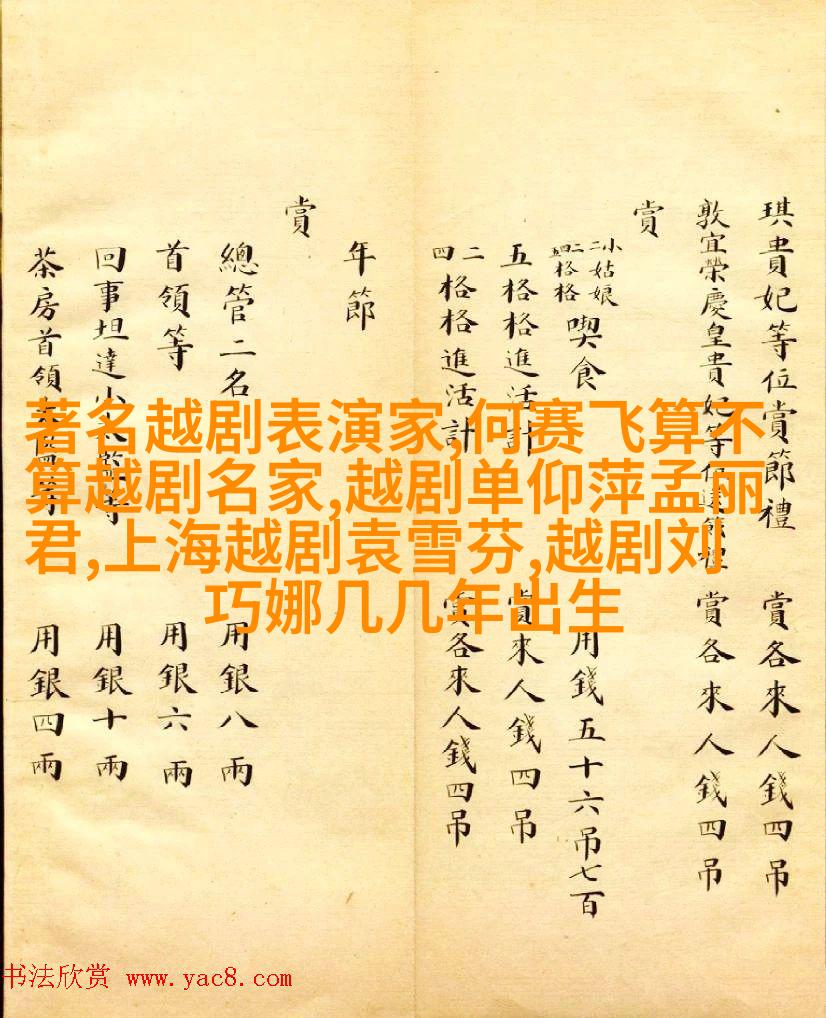 琪貴妃等位賞節禮 賞各來人錢四吊
敦宜榮慶皇貴妃等位送節禮 賞各來人錢四吊
賞
小二姑娘 二四格格 喫食 用錢五十六吊七百
五格格進活計 賞來人錢四吊
二四格格進活計 賞各來人錢四吊
年節
賞
總管二名 用銀八兩
首領等 用銀六兩
回事坦達小太監等 用銀十兩
茶房首領太監等 用銀四兩
著名越剧表演家,何赛飞算不
算越剧名家,越剧单仰萍孟丽
君,上海越剧袁雪芬,越剧刘
巧娜几几年出生
书法欣赏 www.yac8.com